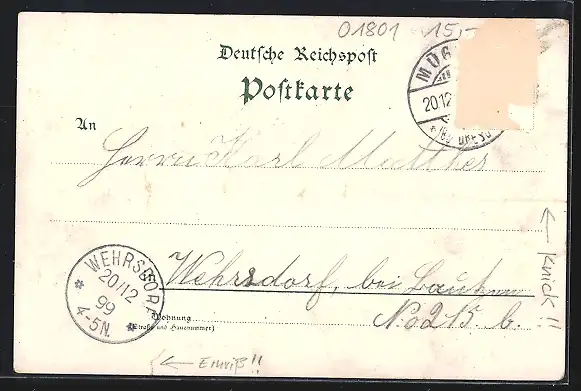 01801 15,-
Deutsche Reichspost
Postkarte
MÜG
20.12
(BZ. DRESD
An
Herrn Karl Matthes
WEHRSDORF
20/12
99
4-5N.
Wehrsdorf, bei Bautzen
No 215. b.
Wohnung
(Straße und Hausnummer)
← Knick!!
← Einriß!!